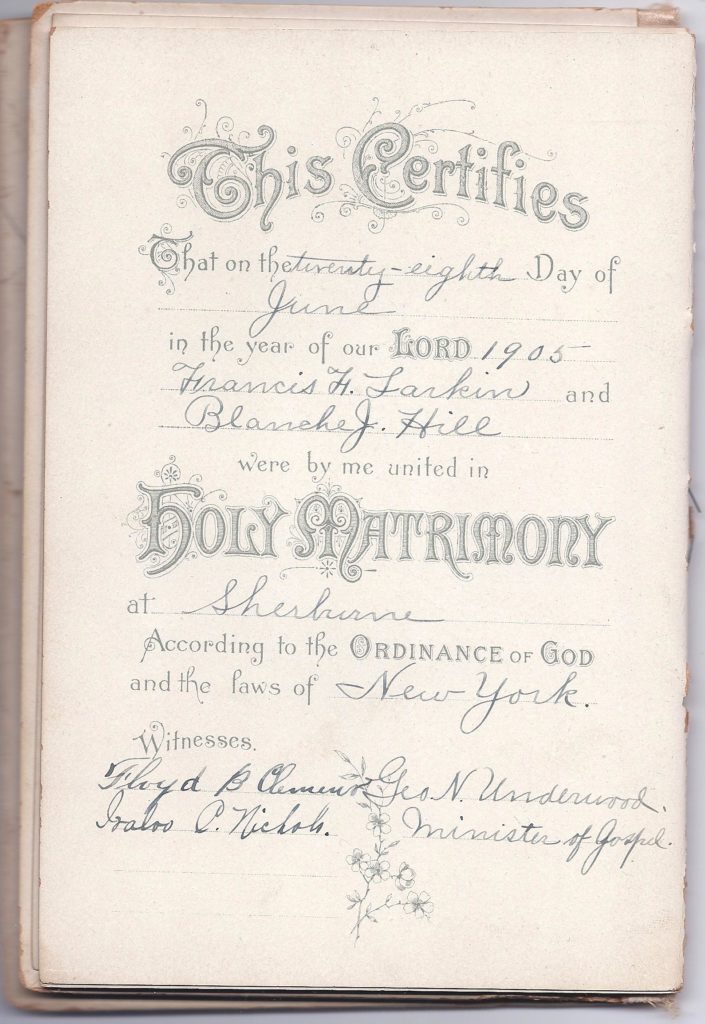 This Certifies
That on the twenty-eighth Day of
June
in the year of our LORD 1905
Francis H. Larkin and
Blanche J. Hill
were by me united in
HOLY MATRIMONY
at Sherburne
According to the ORDINANCE OF GOD
and the laws of New York.
Witnesses.
Floyd B Clemens Geo N. Underwood.
C. Nichols. Minister of Gospel.